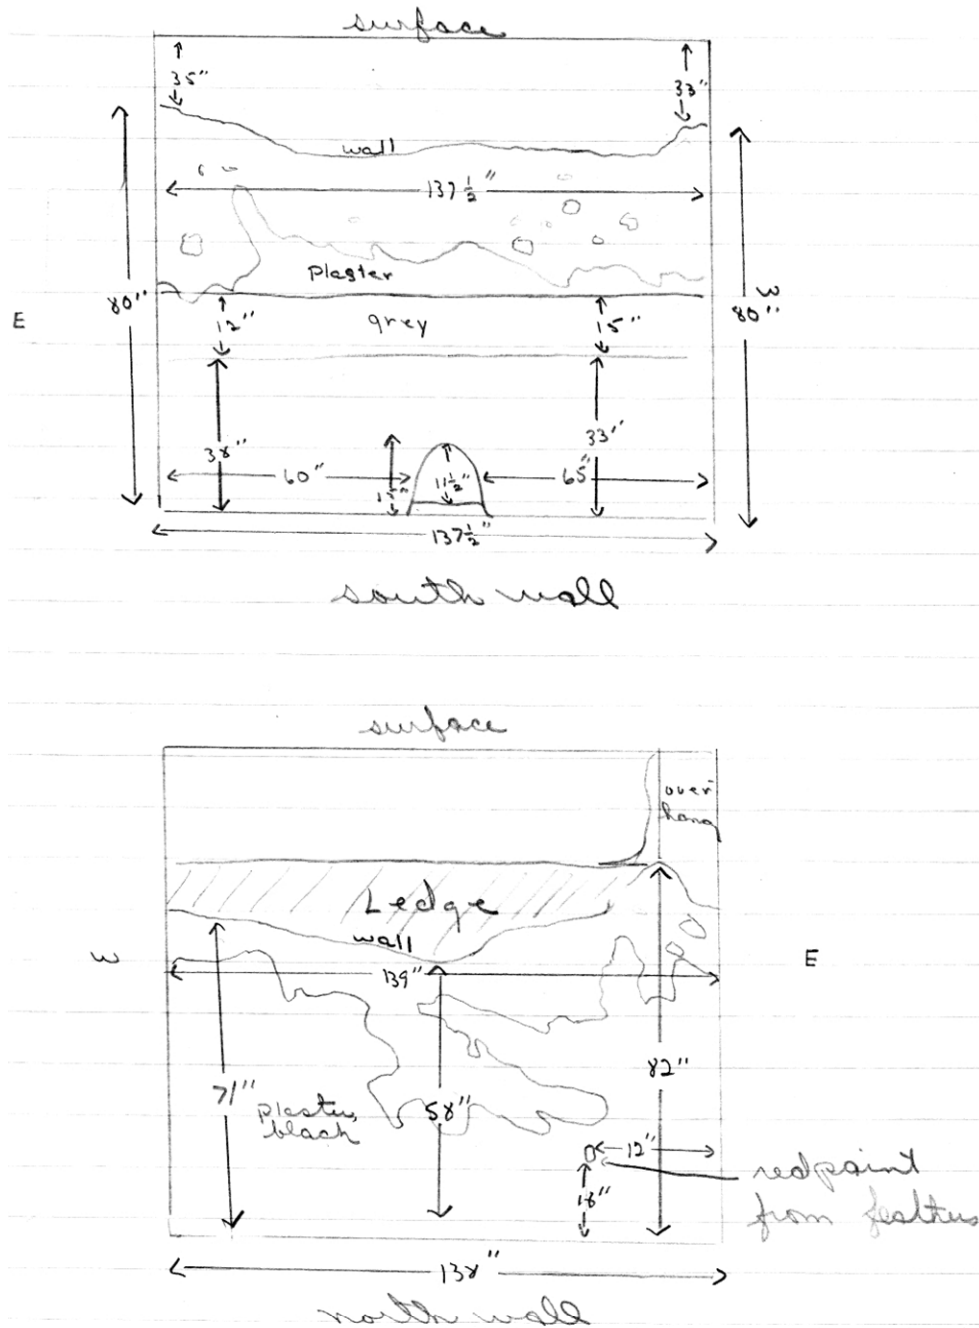 surface
35"
33"
wall
137 1/2"
plaster
80"
W
80"
E
12"
grey
15"
38"
33"
60"
11 1/2"
65"
137 1/2"
south wall
surface
over
hang
Ledge
wall
W
139"
E
82"
71"
plaster,
black
58"
12"
red paint
18"
from feathers
138"
north wall